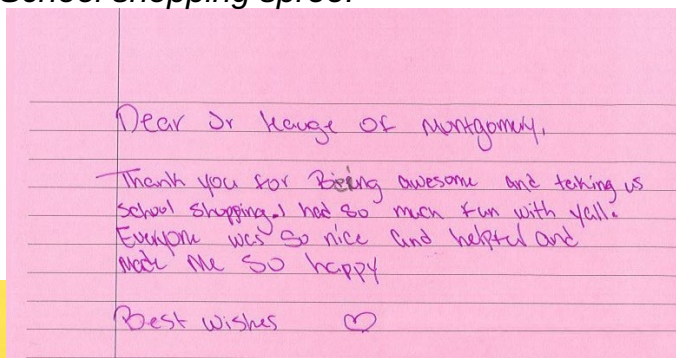 School shopping spree!
Dear Jr League of Montgomery,
Thank you for Being awesome and taking us
school shopping. I had so much fun with yall.
Everyone was so nice and helpful and
made me so happy
Best wishes ♡